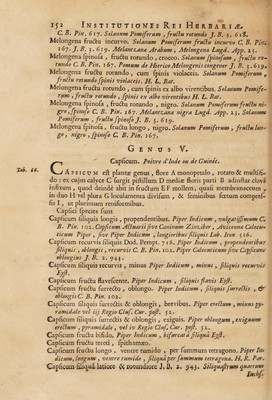 152 INSTITUTIONES REI HERBARIÆ.
C. B. Pin. 617. Solanum Pomiferum, fructu rotundo J. B. 3. 618.
Melongena fructu incurvo. Solanum Pomiferum fructu incurvo C. B. Pin.
167. J. B. 3. 619. Melanzana Arabum, Melongena Lugd. App. 23.
Melongena fructu rotundo, croceo. Solanum spinosum, fructu ro-
tundo C. B. Pin. 167. Pomum de Hierico Melongenis congener J. B. 3. 619.
Melongena fructu rotundo, cum spinis violaceis. Solanum Pomiferum
fructu rotundo spinis violaceis. H. L. Bat.
Melongena fructu rotundo, cum spinis ex albo virentibus. Solanum Pomife-
rum fructu rotundo, spinis ex albo virentibus H. L. Bat.
Melongena spinosa, fructu rotundo, nigro. Solanum Pomiferum fructu ni-
gro, spinoso C. B. Pin. 167. Melanzana nigra Lugd. App. 23. Solanum
Pomiferum, fructu spinoso J. B. 3. 619.
Melongena spinosa, fructu longo, nigro. Solanum Pomiferum fructu lon-
go, nigro, spinoso C. B. Pin. 167.
GENUS V.
Capsicum. Poivre d'Inde ou de Guinée.
Tab. 66.
CAPSICUM est plantæ genus, flore A monopetalo, rotato & multifi-
do: ex cujus calyce C surgit pistillum D mediæ floris parti B adinstar clavi
infixum, quod deinde abit in fructum EF mollem, quasi membranaceum,
in duo H vel plura G loculamenta divisum, & seminibus fœtum compres-
si I, ut plurimum reniformibus.
Capsici species sunt
Capsicum siliquis longis, propendentibus. Piper Indicum, vulgatissimum C.
B. Pin. 102. Capsicum Actuarii sive Caninum Zinziber, Avicennæ Calecu-
ticum Piper, sive Piper Indicum longioribus siliquis Lob. Icon 316.
Capsicum recurvis siliquis Dod. Pempt. 716. Piper Indicum, propendentibus
siliquis, oblongis, recurvis C. B. Pin. 102. Piper Calecuticum sive Capsicum
oblongius J. B. 2. 943.
Capsicum siliquis recurvis, minus. Piper Indicum, minus, siliquis recurvis
Eyst.
Capsicum fructu flavescente. Piper Indicum, siliquis flavis Eyst.
Capsicum fructu surrecto, oblongo. Piper Indicum, siliquis surrectis, &
oblongis C. B. Pin. 102.
Capsicum siliquis surrectis & oblongis, brevibus. Piper erectum, minus py-
ramidale vel iij Regio Cluf. Cur. post. 52.
Capsicum siliquis surrectis & oblongis, exiguis. Piper oblongum, exiguum
erectum, pyramidale, vel iv Regio Cluf. Cur. post. 52.
Capsicum fructu bifido. Piper Indicum, bifurcata siliqua Eyst.
Capsicum fructu tereti, spithamæo.
Capsicum fructu longo, ventre tumido, per summum tetragono. Piper In-
dicum, longum, ventre tumido, siliqua per summum tetragona. H. R. Par.
Capsicum siliqua latiore & rotundiore J. B. 2. 943. Siliquastrum quartum